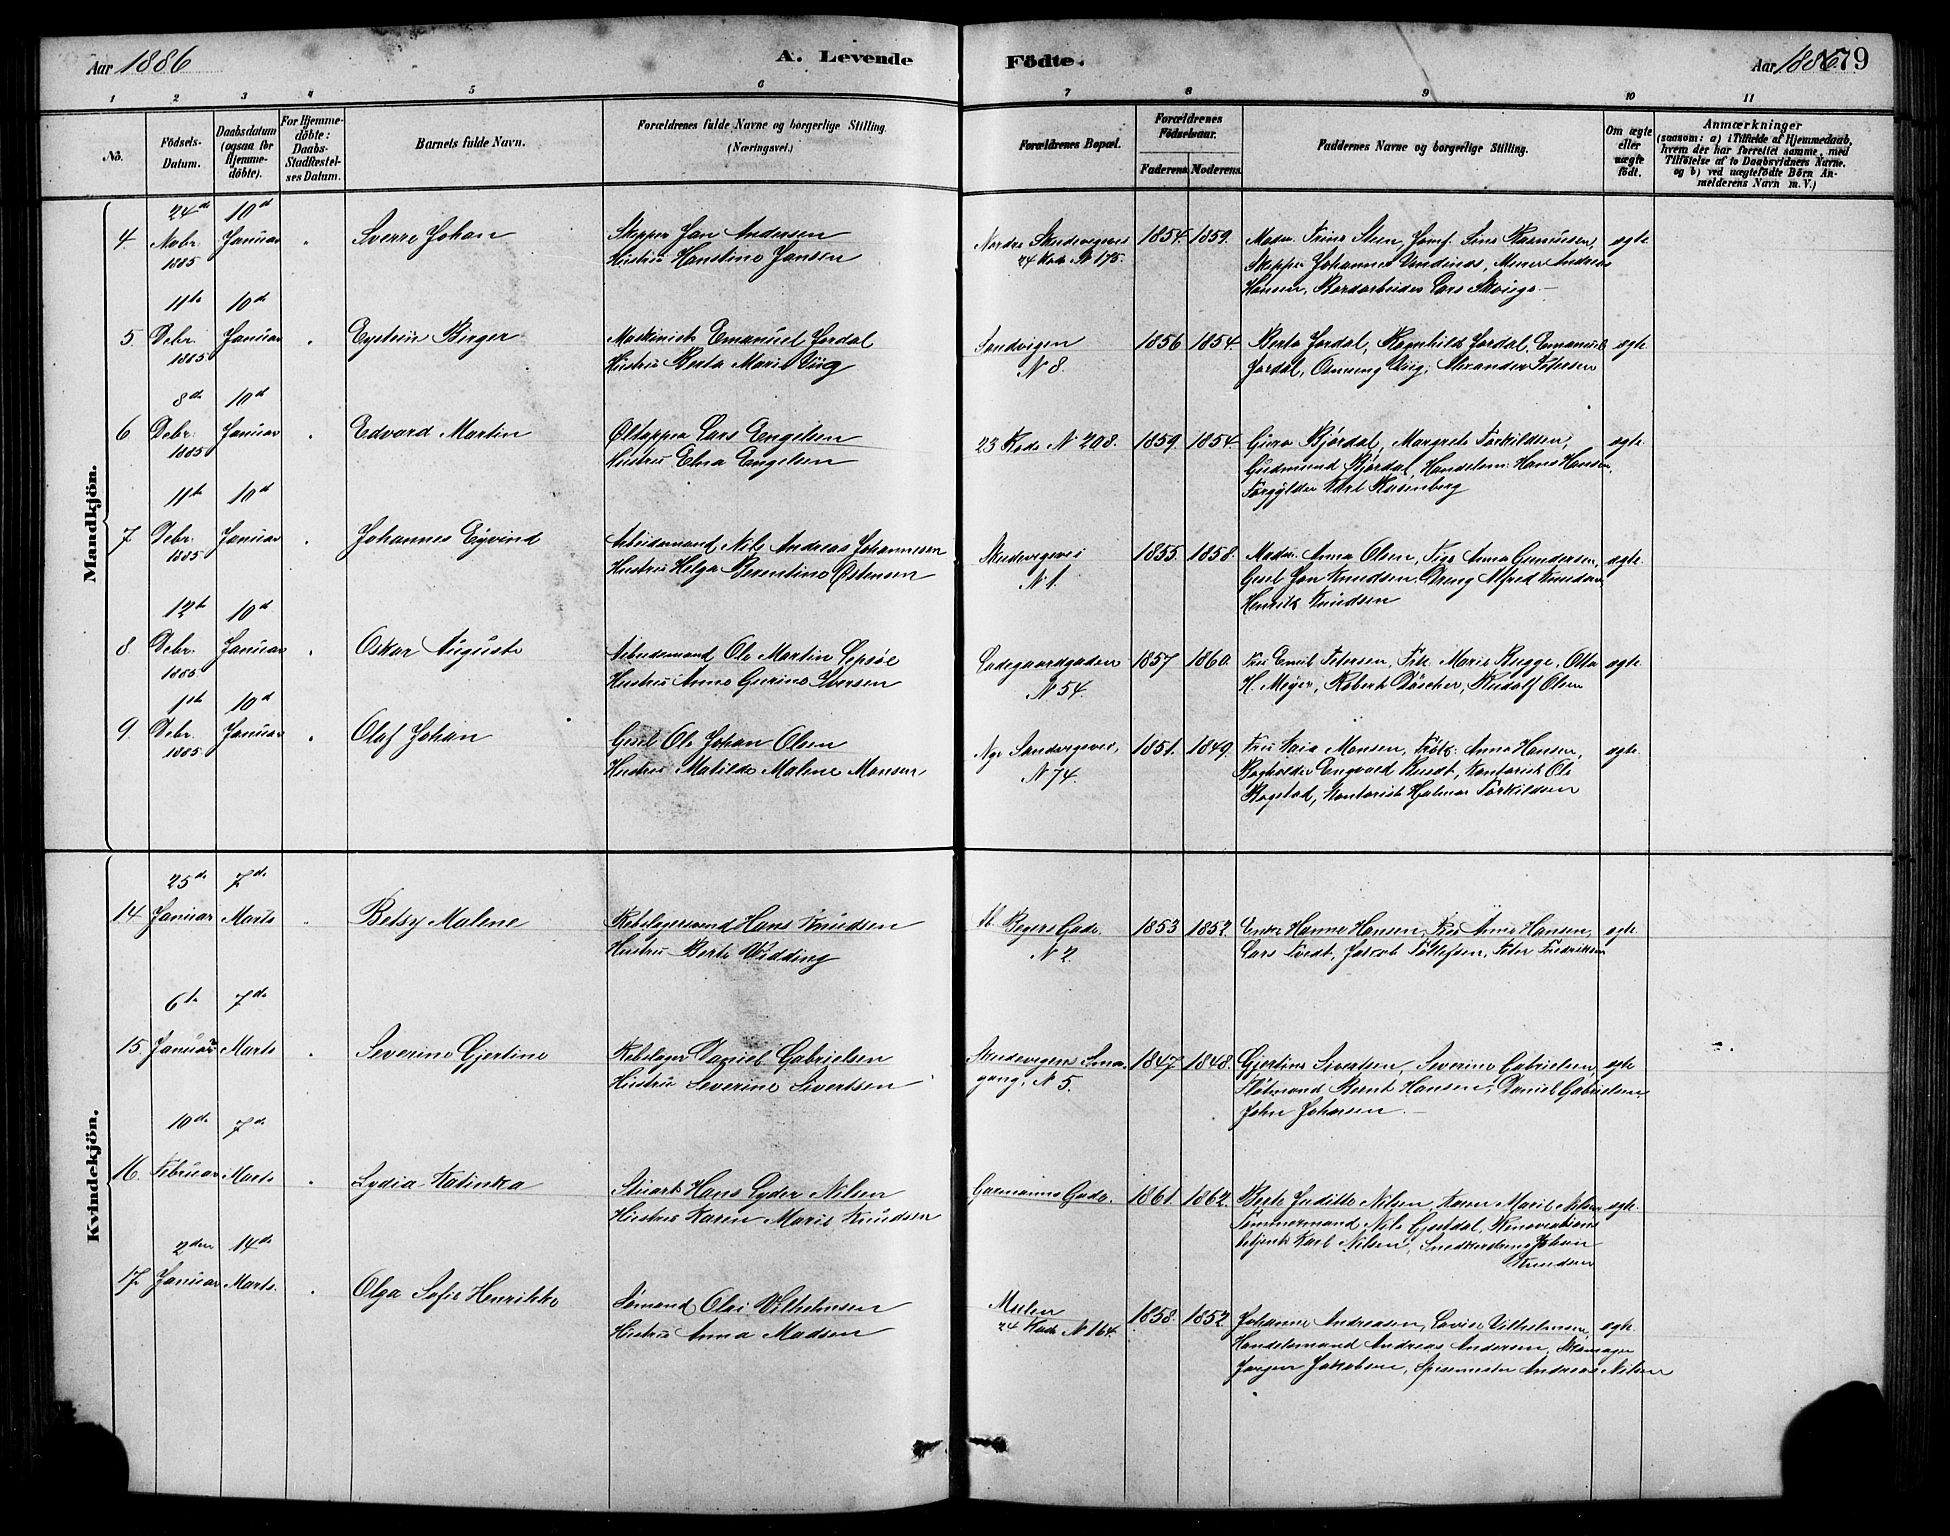 Aar 1886 A. Levende Födte. Aar 1886 179
1 2 3 4 5 6 7 8 9 10 11
No.
Födsels-Datum.
Daabsdatum (ogsaa for Hjemme-döbte).
For Hjemme-döbte: Daabs-Stadfæstel-ses Datum.
Barnets fulde Navn.
Forældrenes fulde Navne og borgerlige Stilling.
(Næringsvei.)
Forældrenes Bopæl.
Forældrenes Födselsaar.
Faderens. Moderens.
Faddernes Navne og borgerlige Stilling.
Om ægte eller uægte födt.
Anmærkninger
(saasom: a) i Tilfælde af Hjemmedaab,
hvem der har forrettet samme, med
Tilföielse af to Daabsvidners Navne.
og b) ved uægtefödte Börn An-
melderens Navn m. V.)
Mandkjön.
4. 24de Novbr. 1885 10de Januar " Sverre Johan
Skipper Jan Andersen
Hustru Hanstine Jansen
Nordre Skudevigsvei
24 Rode N 175.
1854. 1859.
Madm. Trine Steen, Jomf. Sine Rasmussen,
Skipper Johannes Undinas, Murer Andreas
Hansen, Bordarbeider Lars Skouge
ægte
5 11te Debr. 1885 10de Januar " Eystein Birger
Maskinist Emanuel Jordal
Hustru Berta Marie Viig
Sandvigen
N 8.
1856 1854.
Berta Jordal, Ragnhild Jordal, Emanuel
Jordal, Viig, Alexander Petersen
ægte
6 8de Debr. 1885 10de Januar " Edvard Martin
Øltapper Lars Engelsen
Hustru Elna Engelsen
23 Rode N 208.
1859. 1854.
Guro Bjørdal, Margrete Torkildsen,
Gudmund Bjørdal, Handelsm. Hans Hansen,
Forgylder Karl Rosenberg
ægte
7 11te Debr. 1885 10de Januar " Johannes Eyvind
Arbeidsmand Nils Andreas Johannesen
Hustru Helga Berentine Østensen
Skudevigsvei
N 1.
1855. 1858.
Madm. Anna Olsen, Pige Anna Gundersen,
Gesel Jan Knudsen, Dreng Alfred Knudsen
Henrik Knudsen
ægte
8 12te Debr. 1885 10de Januar " Oskar August
Arbeidsmand Ole Martin Lepsøe
Hustru Anna Gurine Iversen
Ladegaardgaden
N 54.
1857 1860.
Fru Emil Petersen, Frk. Marie Bugge, Otto
H. Meyer, Robert Döscher, Rudolf Olsen
ægte
9. 1ste Debr. 1885 10de Januar " Olaf Johan
Gesel Ole Johan Olsen
Hustru Matilde Malene Monsen
Nye Sandvigsvei,
N 74.
1851. 1849.
Fru Kaia Monsen, Frøk. Anna Hansen,
Bogholder Engvald Rundt, Kontorist Ole
Bogstad, Kontorist Hjalmar Torkildsen
ægte
Kvindekjön.
14 25de Januar 7de Marts " Betsy Malene
Rebslagersvend Hans Knudsen
Hustru Berte Widding
N 2.
1853 1852.
Enke Hanna Hansen, Fru Anna Hansen,
Lars Tvedt, Jakob Tollefsen, Peter Fredriksen
ægte
15. 6te Januar 7de Marts " Severine Gjertine
Rebslager Daniel Gabrielsen
Hustru Severine Sivertsen
Skudevigens Sma-
gang, N 5.
1847. 1848.
Gjertine Sivertsen, Severine Gabrielsen,
Fløtmand Bernt Hansen, Daniel Gabrielsen,
John Johansen.
ægte
16. 10de Februar 7de Marts " Lydia Katinka
Stuart Hans Lyder Nilsen
Hustru Karen Marie Knudsen
Garmanns Gade.
1861. 1862.
Berte Juditte Nilsen, Karen Marie Nilsen
Tømmermand Nils Gjerdal, Renovations
betjent Karl Nilsen, Johan
Knudsen
ægte.
17. 2den Januar 14de Marts. " Olga Sofie Henrikke
Sømand Olai Vilhelmsen
Hustru Anna Madsen
Mulen
24 Rode N 164.
1858. 1852
Johanne Andreasen, Lovise Vilhelmsen,
Handelsmand Andreas Andersen, Skomager
Jørgen Jakobsen, Andreas Nilsen
ægte.